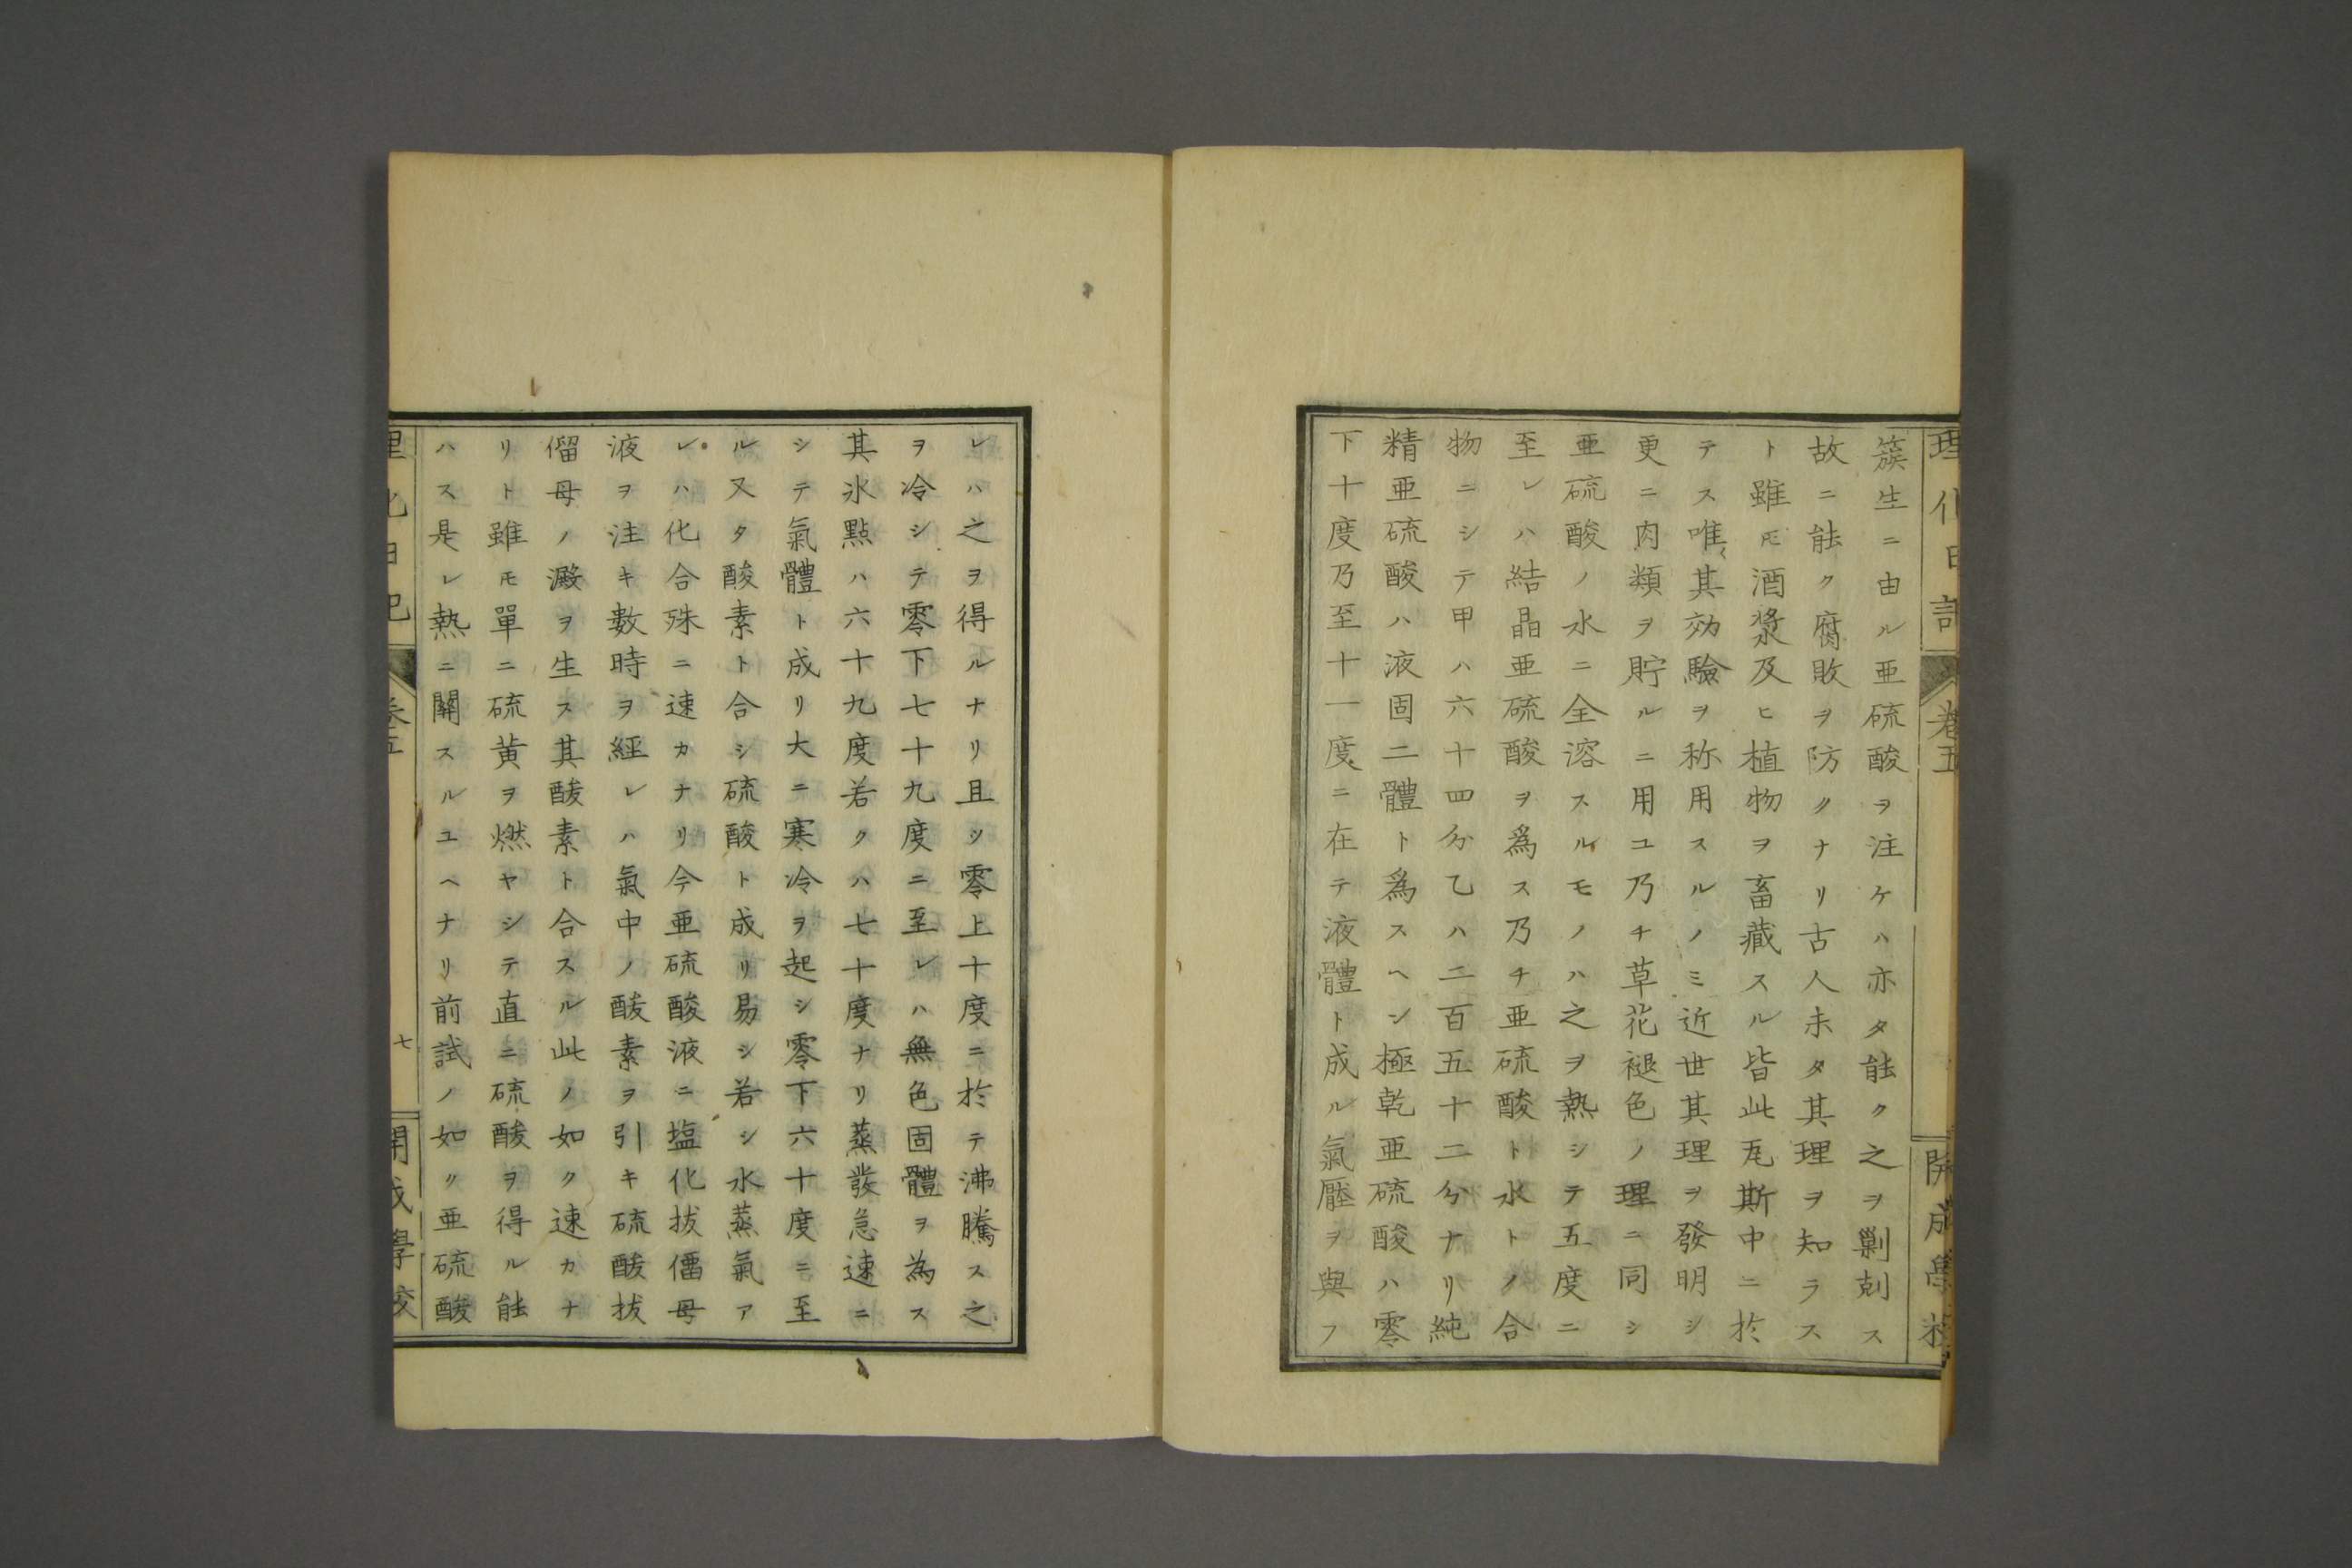 理化日記
巻五
開成學校
簇生ニ由ル亜硫酸ヲ注ケハ亦タ能ク之ヲ剿剋ス
故ニ能ク腐敗ヲ防クナリ古人未タ其理ヲ知ラス
ト雖𪜈酒漿及ヒ植物ヲ畜藏スル皆此瓦斯中ニ於
テス唯其効驗ヲ称用スルノミ近世其理ヲ發明シ
更ニ肉類ヲ貯ルニ用ユ乃チ草花褪色ノ理ニ同シ
亜硫酸ノ水ニ全溶スルモノハ之ヲ熱シテ五度ニ
至レハ結晶亜硫酸ヲ爲ス乃チ亜硫酸ト水トノ合
物ニシテ甲ハ六十四分乙ハ二百五十二分ナリ純
精亜硫酸ハ液固二體ト爲スヘシ極乾亜硫酸ハ零
下十度乃至十一度ニ在テ液體ト成ル氣壓ヲ與フ
レハ之ヲ得ルナリ且シ零上十度ニ於テ沸騰ス之
ヲ冷シテ零下七十九度ニ至レハ無色固體ヲ為ス
其氷點ハ六十九度若クハ七十度ナリ蒸發急速ニ
シテ氣體ト成リ大ニ寒冷ヲ起シ零下六十度ニ至
ル又タ酸素ト合シ硫酸ト成リ易シ若シ水蒸氣ア
レハ化合殊ニ速カナリ今亜硫酸液ニ塩化抜僭母
液ヲ注キ數時ヲ經レハ氣中ノ酸素ヲ引キ硫酸抜
僭母ノ澱ヲ生ス其酸素ト合スル此ノ如ク速カナ
リト雖𪜈單ニ硫黄ヲ燃ヤシテ直ニ硫酸ヲ得ル能
ハス是レ熱ニ關スルユヘナリ前試ノ如ク亜硫酸
理化日記
巻五
七
開成學校